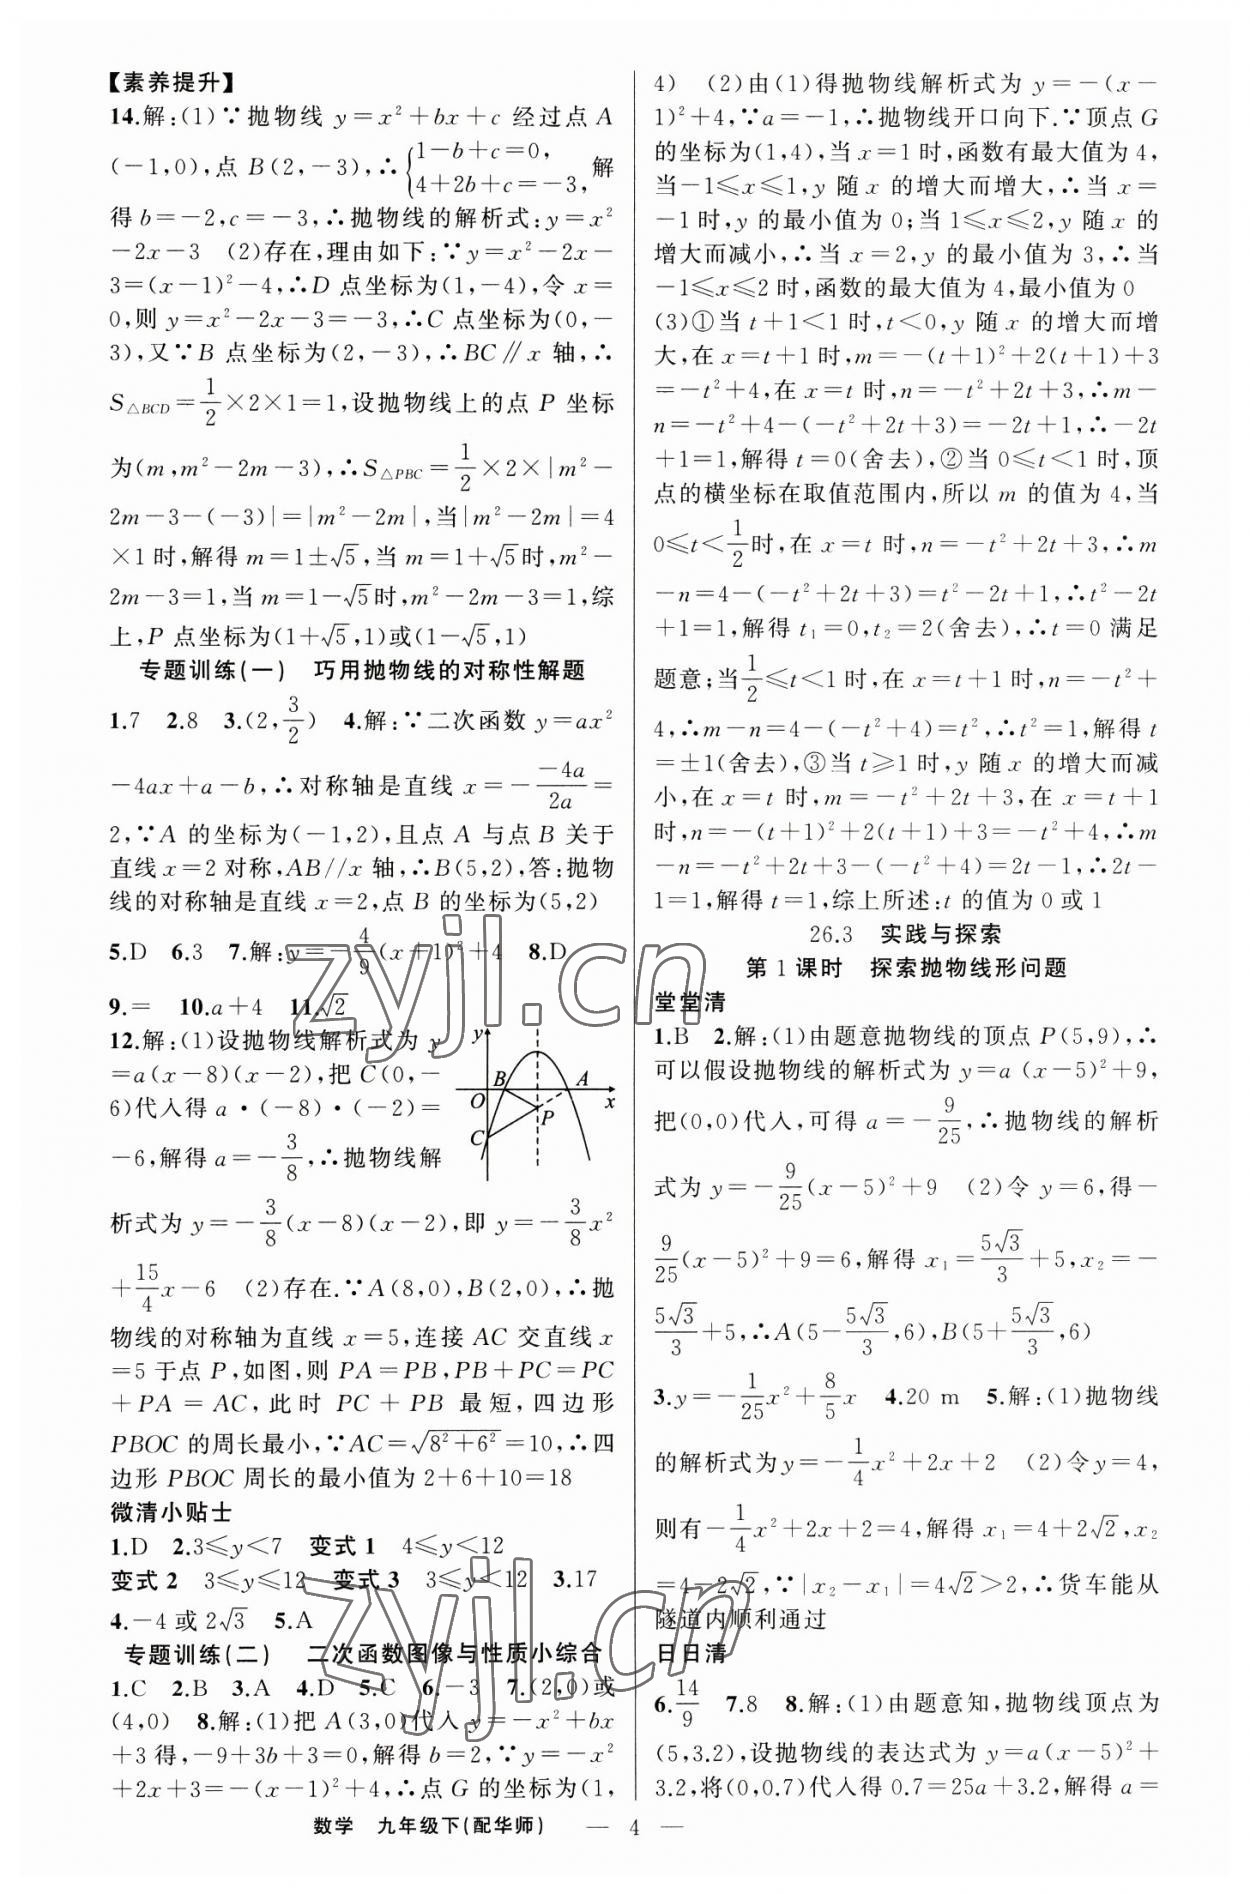 【素养提升】
14.解:(1)∵抛物线 y=x²+bx+c 经过点 A
(-1,0),点 B(2,-3),∴{1-b+c=0, 4+2b+c=-3, 解
得 b=-2,c=-3,∴抛物线的解析式:y=x²
-2x-3 (2)存在,理由如下:∵y=x²-2x-
3=(x-1)²-4,∴D 点坐标为(1,-4),令 x=
0,则 y=x²-2x-3=-3,∴C 点坐标为(0,-
3),又∵B 点坐标为(2,-3),∴BC∥x 轴,∴
S△BCD=1/2×2×1=1,设抛物线上的点 P 坐标
为(m,m²-2m-3),∴S△PBC=1/2×2×|m²-
2m-3-(-3)|=|m²-2m|,当|m²-2m|=4
×1 时,解得 m=1±√5,当 m=1+√5时,m²-
2m-3=1,当 m=1-√5时,m²-2m-3=1,综
上,P 点坐标为(1+√5,1)或(1-√5,1)
专题训练(一) 巧用抛物线的对称性解题
1.7 2.8 3.(2,3/2) 4.解:∵二次函数 y=ax²
-4ax+a-b,∴对称轴是直线 x=-(-4a)/(2a)=
2,∵A 的坐标为(-1,2),且点 A 与点 B 关于
直线 x=2 对称,AB//x 轴,∴B(5,2),答:抛物
线的对称轴是直线 x=2,点 B 的坐标为(5,2)
5.D 6.3 7.解:y=-4/9(x+1)²+4 8.D
9.= 10.a+4 11.√2
12.解:(1)设抛物线解析式为 y
=a(x-8)(x-2),把 C(0,-
6)代入得 a·(-8)·(-2)=
-6,解得 a=-3/8,∴抛物线解
y
B
A
O
x
P
C
析式为 y=-3/8(x-8)(x-2),即 y=-3/8x²
+15/4x-6 (2)存在.∵A(8,0),B(2,0),∴抛
物线的对称轴为直线 x=5,连接 AC 交直线 x
=5 于点 P,如图,则 PA=PB,PB+PC=PC
+PA=AC,此时 PC+PB 最短,四边形
PBOC 的周长最小,∵AC=√(8²+6²)=10,∴四
边形 PBOC 周长的最小值为 2+6+10=18
微清小贴士
1.D 2.3≤y<7 变式 1 4≤y<12
变式 2 3≤y≤12 变式 3 3≤y<12 3.17
4.-4 或 2√3 5.A
专题训练(二) 二次函数图像与性质小综合
1.C 2.B 3.A 4.D 5.C 6.-3 7.(2,0)或
(4,0) 8.解:(1)把 A(3,0)代入 y=-x²+bx
+3 得,-9+3b+3=0,解得 b=2,∵y=-x²
+2x+3=-(x-1)²+4,∴点 G 的坐标为(1,
4) (2)由(1)得抛物线解析式为 y=-(x-
1)²+4,∵a=-1,∴抛物线开口向下.∵顶点 G
的坐标为(1,4),当 x=1 时,函数有最大值为 4,
当-1≤x≤1,y 随 x 的增大而增大,∴当 x=
-1 时,y 的最小值为 0;当 1≤x≤2,y 随 x 的
增大而减小,∴当 x=2,y 的最小值为 3,∴当
-1≤x≤2 时,函数的最大值为 4,最小值为 0
(3)①当 t+1<1 时,t<0,y 随 x 的增大而增
大,在 x=t+1 时,m=-(t+1)²+2(t+1)+3
=-t²+4,在 x=t 时,n=-t²+2t+3,∴m-
n=-t²+4-(-t²+2t+3)=-2t+1,∴-2t
+1=1,解得 t=0(舍去),②当 0≤t<1 时,顶
点的横坐标在取值范围内,所以 m 的值为 4,当
0≤t<1/2时,在 x=t 时,n=-t²+2t+3,∴m
-n=4-(-t²+2t+3)=t²-2t+1,∴t²-2t
+1=1,解得 t₁=0,t₂=2(舍去),∴t=0 满足
题意;当1/2≤t<1 时,在 x=t+1 时,n=-t²+
4,∴m-n=4-(-t²+4)=t²,∴t²=1,解得 t
=±1(舍去),③当 t≥1 时,y 随 x 的增大而减
小,在 x=t 时,m=-t²+2t+3,在 x=t+1
时,n=-(t+1)²+2(t+1)+3=-t²+4,∴m
-n=-t²+2t+3-(-t²+4)=2t-1,∴2t-
1=1,解得 t=1,综上所述:t 的值为 0 或 1
26.3 实践与探索
第 1 课时 探索抛物线形问题
堂堂清
1.B 2.解:(1)由题意抛物线的顶点 P(5,9),∴
可以假设抛物线的解析式为 y=a (x-5)²+9,
把(0,0)代入,可得 a=-9/25,∴抛物线的解析
式为 y=-9/25(x-5)²+9 (2)令 y=6,得-
9/25(x-5)²+9=6,解得 x₁=5√3/3+5,x₂=-
5√3/3+5,∴A(5-5√3/3,6),B(5+5√3/3,6)
3.y=-1/25x²+8/5x 4.20 m 5.解:(1)抛物线
的解析式为y=-1/4x²+2x+2 (2)令y=4,
则有-1/4x²+2x+2=4,解得 x₁=4+2√2,x₂
=4-2√2,∵|x₂-x₁|=4√2>2,∴货车能从
隧道内顺利通过
日日清
6.14/9 7.8 8.解:(1)由题意知,抛物线顶点为
(5,3.2),设抛物线的表达式为 y=a(x-5)²+
3.2,将(0,0.7)代入得 0.7=25a+3.2,解得 a=
数学 九年级下(配华师) — 4 —
zyjl.cn
zyjl.cn